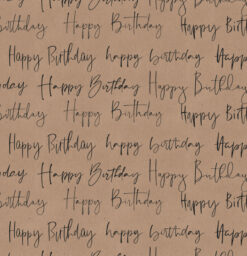 Happy Birthday Happy
Happy Birthday happy birthday Happy
day Happy Birthday Happy Birthday
irthday Happy Birthday Happy Birt
Happy Birthday happy birthday Happy
oday Happy Birthday Happy Birthday
irthday Happy Birthday Happy Birt
Happy Birthday happy birthday Happy